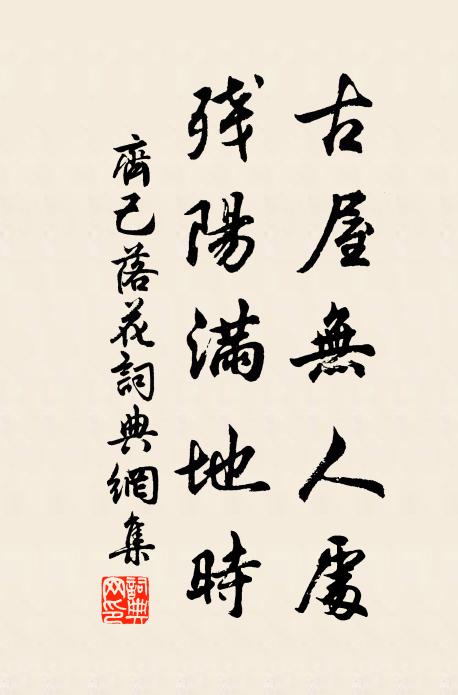 古屋無人處
殘陽滿地時
齊己落花詞典網集
詞典网印